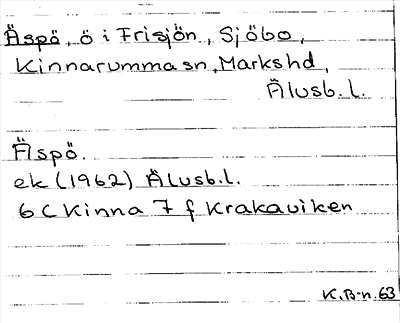 Äspö, ö i Frisjön, Sjöbo,
Kinnarumma sn, Markshd,
Älvsb. l.
Äspö.
ek (1962) Älvsb. l.
6 C Kinna 7 f Krakaviken
K. B-n. 63